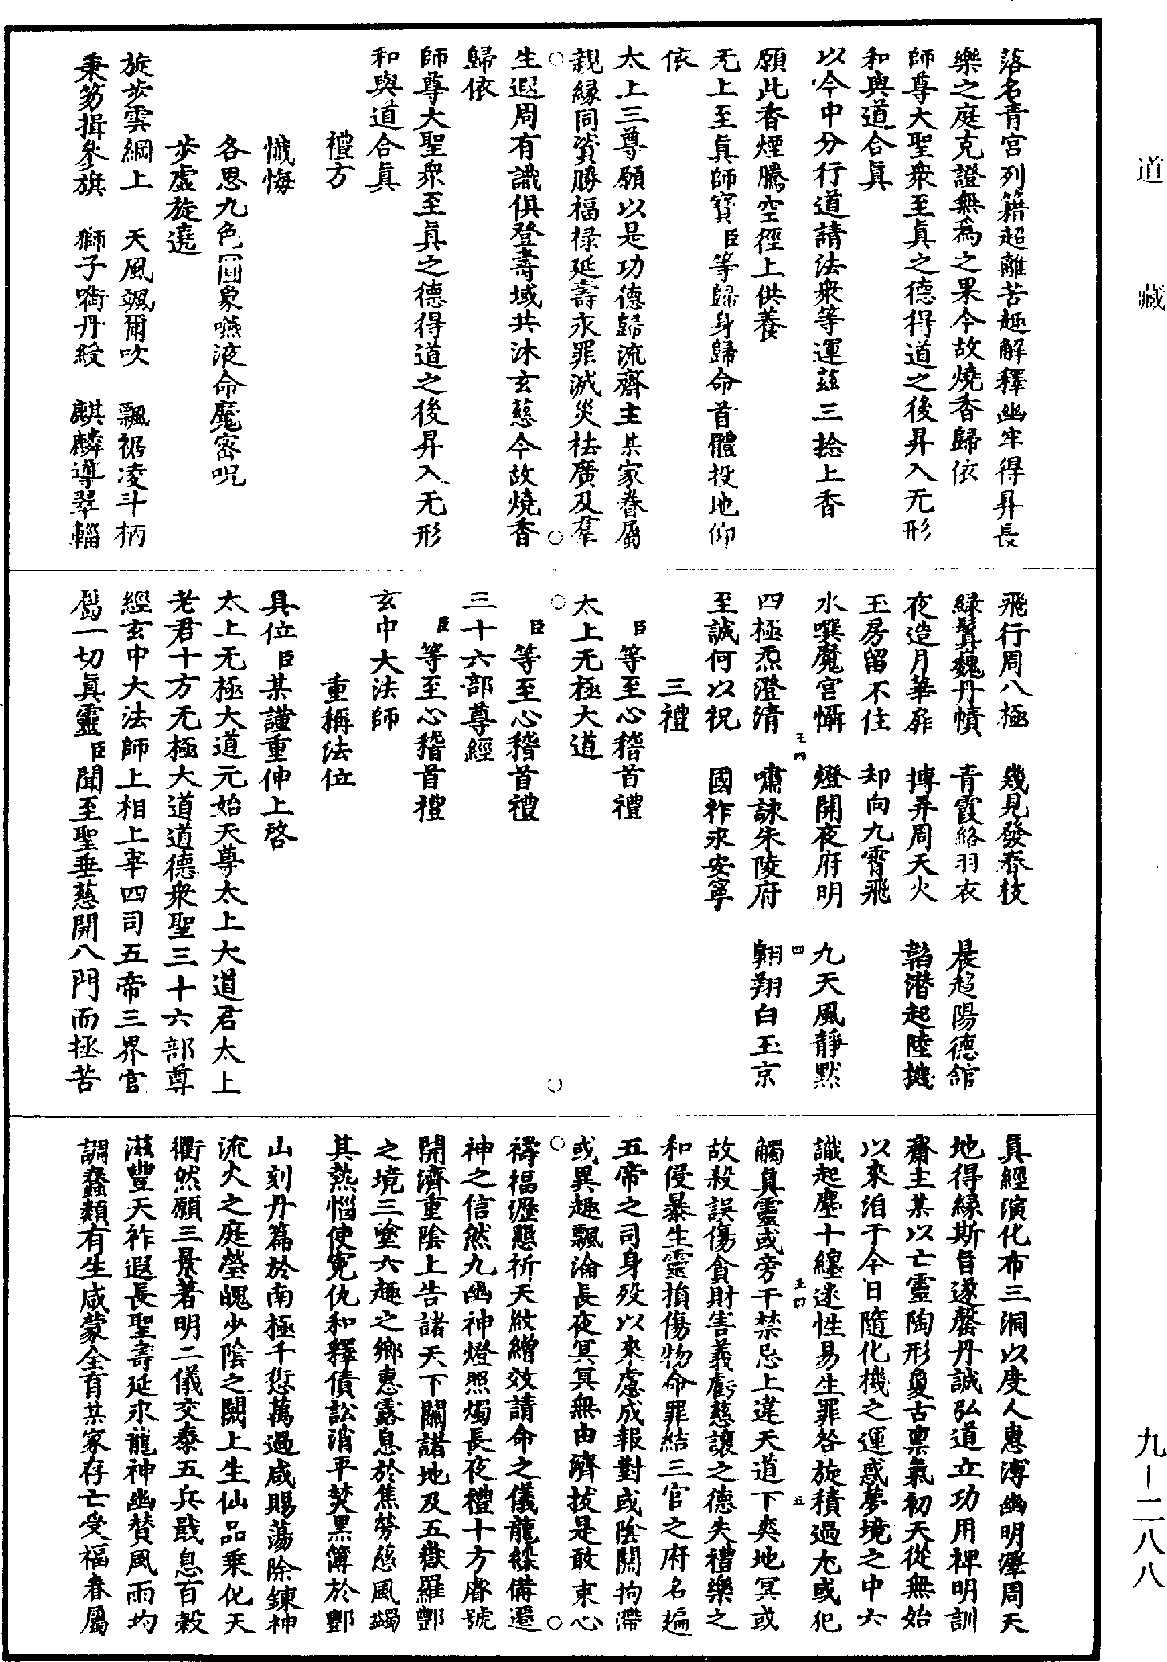 道藏
落名青宮列籍超離苦趣解釋幽牢得昇長
樂之庭克證無為之果今故燒香歸依
師尊大聖衆至真之德得道之後昇入无形
和與道合真
以今中分行道請法衆等運茲三捻上香
願此香煙騰空徑上供養
无上至真師寶臣等歸身歸命首體投地仰
依
太上三尊願以是功德歸流齋主某家眷屬
親緣同資勝福祿延壽永罪滅災祛廣及羣
生遐周有識俱登壽域共沐玄慈今故燒香
歸依
師尊大聖衆至真之德得道之後昇入无形
和與道合真
禮方
懺悔
各思九色圓象嚥液命魔密呪
步虛旋遶
旋步雲綱上 天風颯爾吹 飄裾凌斗柄
秉笏揖參旗 獅子銜丹綬 麒麟導翠輜
飛行周八極 幾見發春枝
緑鬂巍丹幘 青霞絡羽衣 晨趍陽德館
夜造月華扉 摶弄周天火 韜潛起陸機
玉房留不住 却向九霄飛
水噀魔宮懾 燈開夜府明 九天風靜默
四極炁澄清 嘯詠朱陵府 翱翔白玉京
至誠何以祝 國祚永安寧
三禮
臣等至心稽首禮
太上无極大道
臣等至心稽首禮
三十六部尊經
臣等至心稽首禮
玄中大法師
重稱法位
具位臣某謹重伸上啓
太上无極大道元始天尊太上大道君太上
老君十方无極大道道德衆聖三十六部尊
經玄中大法師上相上宰四司五帝三界官
屬一切真靈臣聞至聖垂慈開八門而拯苦
真經演化布三洞以度人惠溥幽明澤周天
地得緣斯旨遂罄丹誠弘道立功用裨明訓
齋主某以亡靈陶形夐古稟氣初天從無始
以來洎于今日隨化機之運惑夢境之中六
識起塵十纏迷性易生罪咎旋積過尤或犯
觸真靈或旁干禁忌上違天道下爽地冥或
故殺誤傷貪財害義虧慈讓之德失禮樂之
和侵暴生靈損傷物命罪結三官之府名編
五帝之司身殁以來慮成報對或陰關拘滯
或異趣飄淪長夜冥冥無由濟拔是敢束心
禱福瀝懇祈天紋繒效請命之儀龍緣備還
神之信然九幽神燈照燭長夜禮十方睿號
開濟重陰上告諸天下關諸地及五嶽羅酆
之境三塗六趣之鄉惠露息於焦勞慈風蠲
其熱惱使寃仇和釋債訟消平焚黑簿於酆
山刻丹篇於南極千愆萬過咸賜蕩除鍊神
流火之庭瑩魄少陰之闕上生仙品乘化天
衢然願三景著明二儀交泰五兵戢息百穀
滋豐天祚遐長聖壽延永龍神幽贊風雨均
調蠢類有生咸蒙全育某家存亡受福眷屬
九－二八八